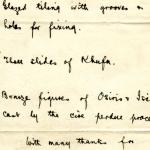 Glazed tiling with grooves &
holes for fixing.
Three slides of Khafa.
Bronze figures of Osiris & Isi
cast by the cire perdue proc
With many thanks for